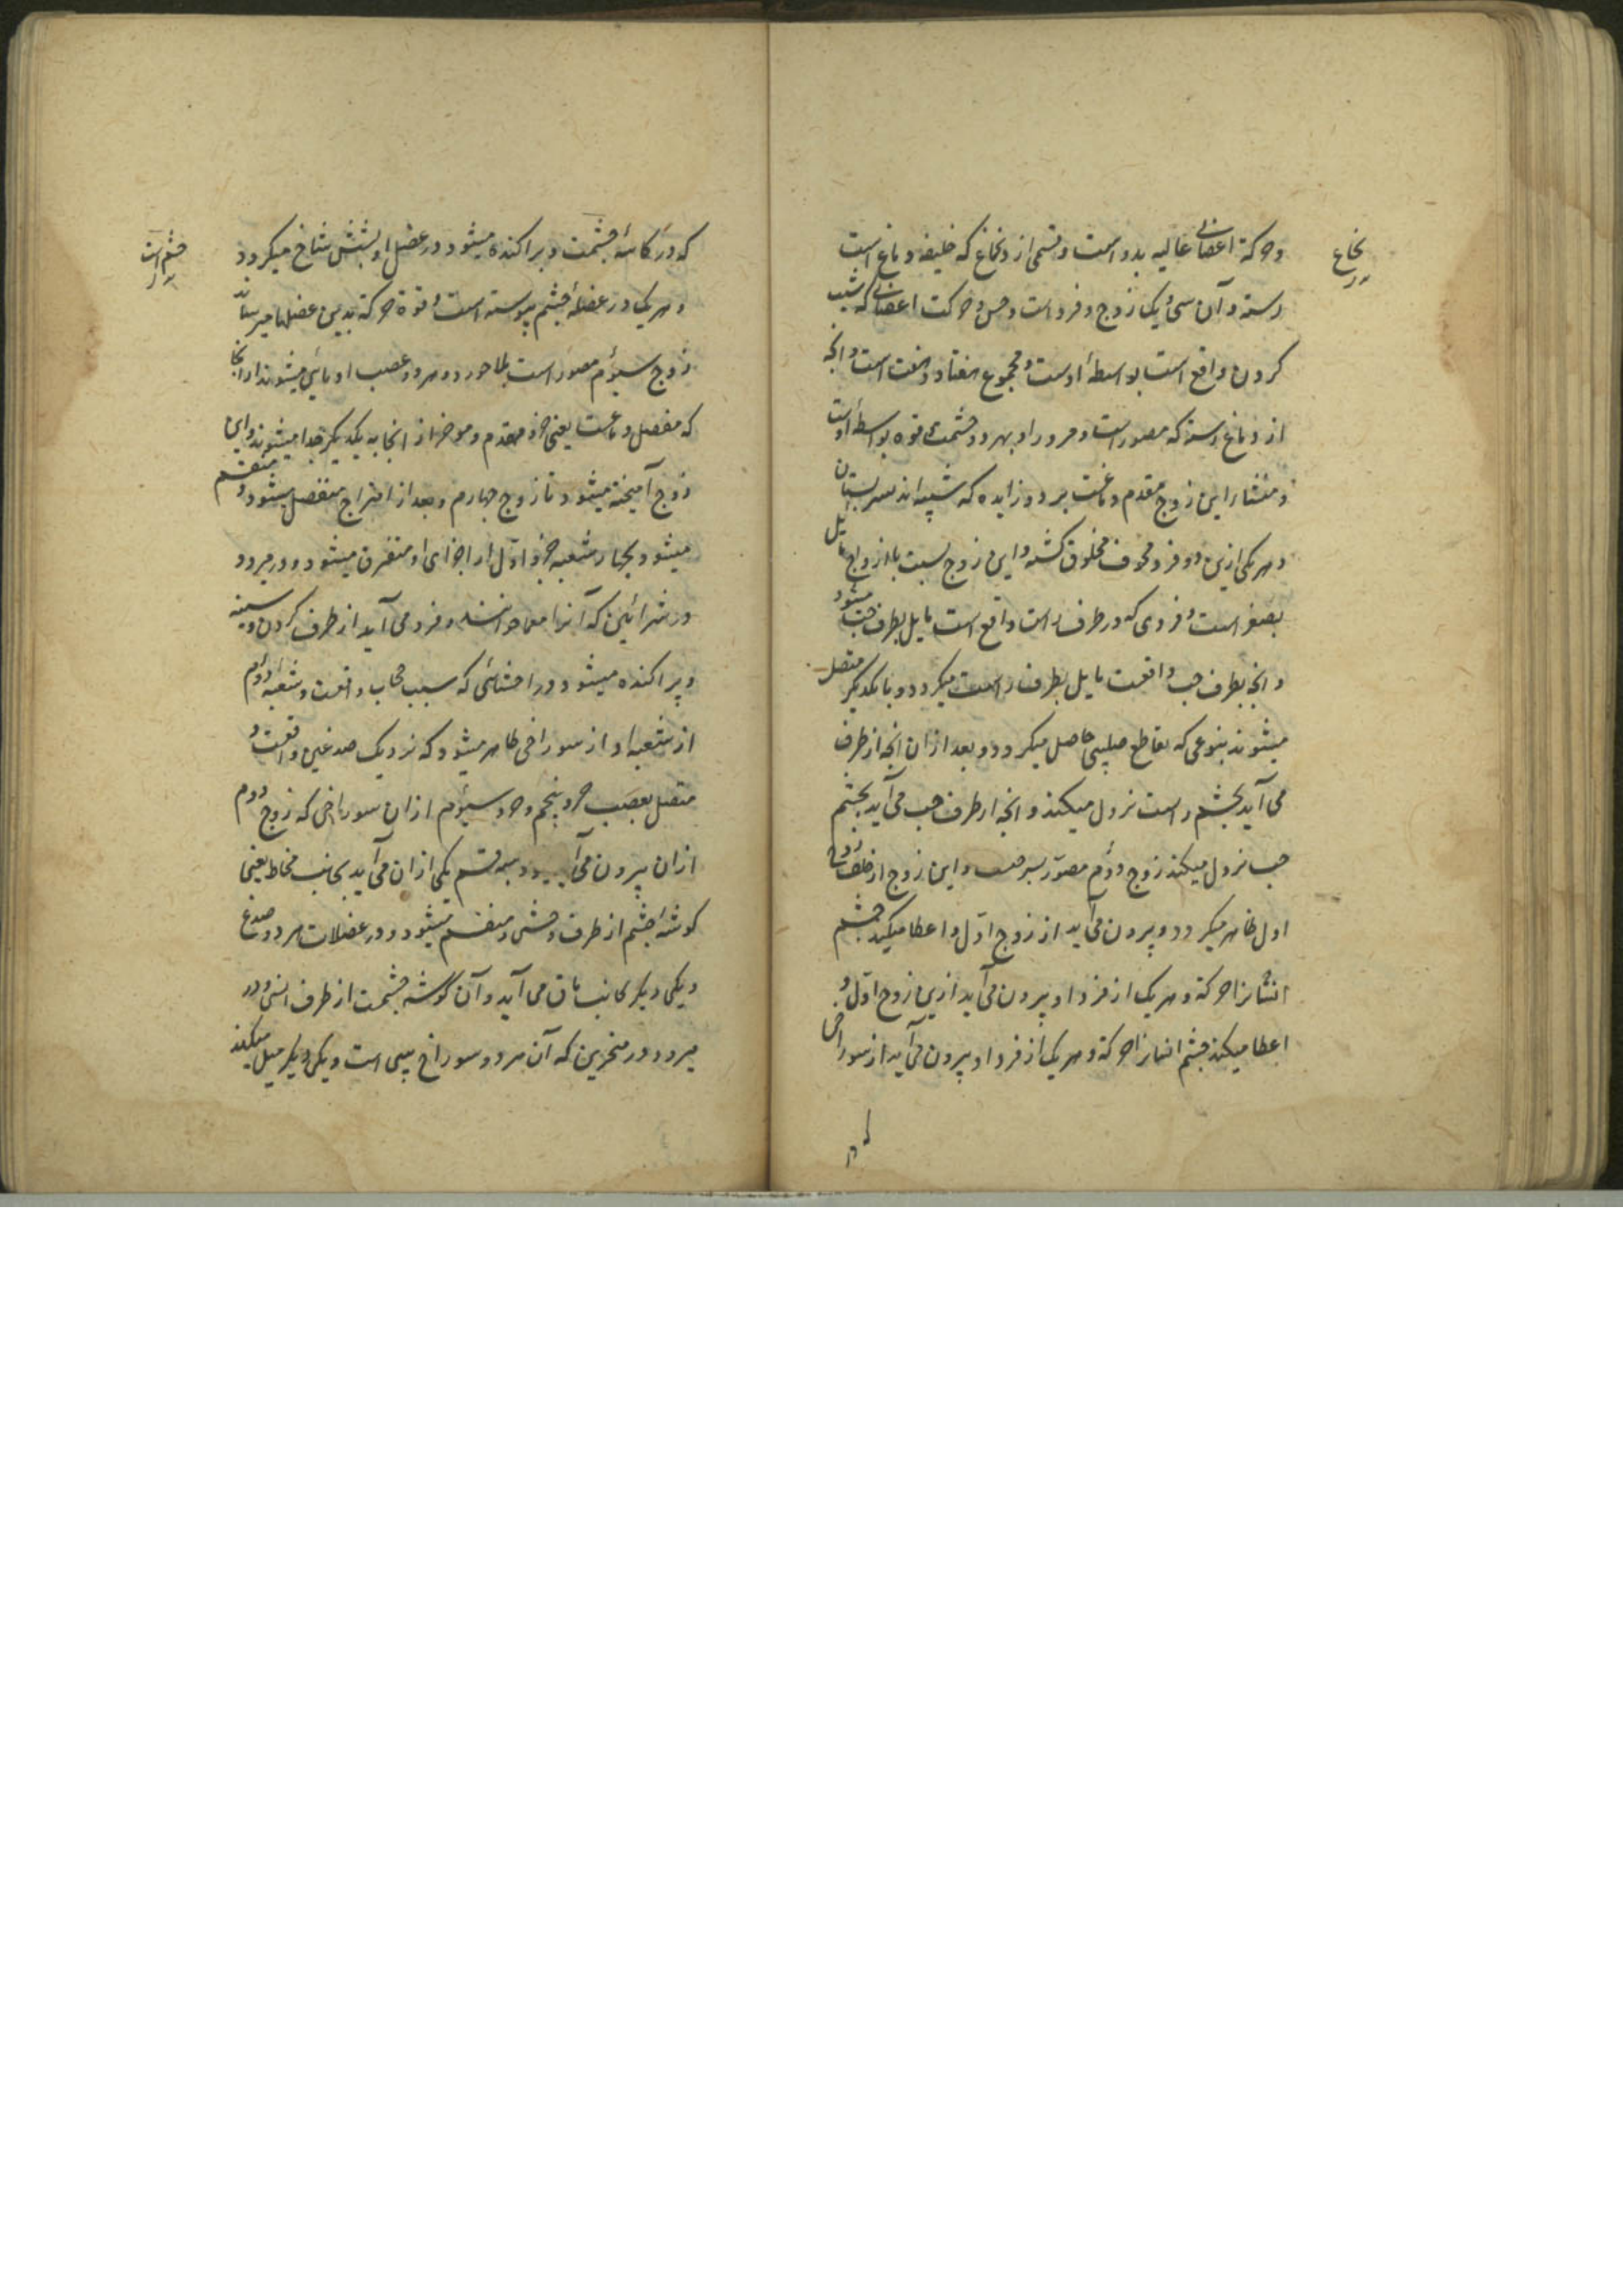 نخاع
وحرکة اعضای عالیه بدو است و قسمی از و نخاع که خلیفه دماغ است
رسته و آن سی و یک زوج و فرد است و حس و حرکت اعضای که شیب
کردن واقع است بواسطهٔ اوست و مجموع هفتاد و هفت است و انچه
از دماغ رسته که مصور است و مرور او بهر دو چشمست قوه بواسطهٔ اوست
و منشاء این زوج مقدم دماغست بر دو زایده که شبیه اند بسر پستان
و هر یکی ازین دو فرد مجوف مخلوق گشته و این زوج نسبت با ازواج مایل
بصغر است و فردی که در طرف راست واقع است مایل بطرف چپ میشود
و انچه بطرف چپ واقعست مایل بطرف راست میکردد و با یکدیکر متصل
میشوند بنوعی که تقاطع صلیبی حاصل میکردد و بعد از ان انچه از طرف
می آید بچشم راست نزول میکند و انچه از طرف چپ می آید بچشم
چپ نزول میکند زوج دوم مصور بسرخست و این زوج از خلف زوج
اول ظاهر میکردد و بیرون می آید از زوج اول و اعطا میکند چشم
انشانرا حرکة و هر یک از فرد او بیرون می آید ازین زوج اول و
اعطا میکند چشم انسانرا حرکة و هر یک از فرد او بیرون می آید از سوراخی
که در
که در کاسهٔ چشمست و پراکنده میشود در عضل او بشش شاخ میکردد
چشم است
و هر یک در عضلهٔ چشم پیوسته است و قوة حرکة بدین عضلها میرساند
زوج سیوم مصور است بلاجورد و هر دو عصب او ناشی میشوند از انجا
که مفصل دماغست یعنی جزو مقدم و موخر از انجا به یکدیکر جدا میشوند و این
زوج آمیخته میشود تا زوج چهارم و بعد از امتزاج منفصل میشود و منقسم
میشود بچهار شعبه جزو اول از اجزای او متفرق میشود و در میرود
در شرائین که آنرا خوانند و فرو می آید از طرف کردن و سینه
و پراکنده میشود در احشائی که سبب حجاب واقعست و شعبهٔ دوم
از شعبه او از سوراخی ظاهر میشود که نزدیک صدغین واقعست و
متصل بعصب جزو پنجم و جزو سیوم ازان سوراخی که زوج دوم
ازان بیرون می آید و بسه قسم یکی ازان می آید بجانب مخاط یعنی
کوشهٔ چشم از طرف وحشی و منقسم میشود و در عضلات هر دو صدغ
و یکی دیکر بجانب ماق می آید و آن گوشه چشمست از طرف انسی و در
میرود در منخرین که آن هر دو سوراخ بینی است و یکی دیکر میل میکند